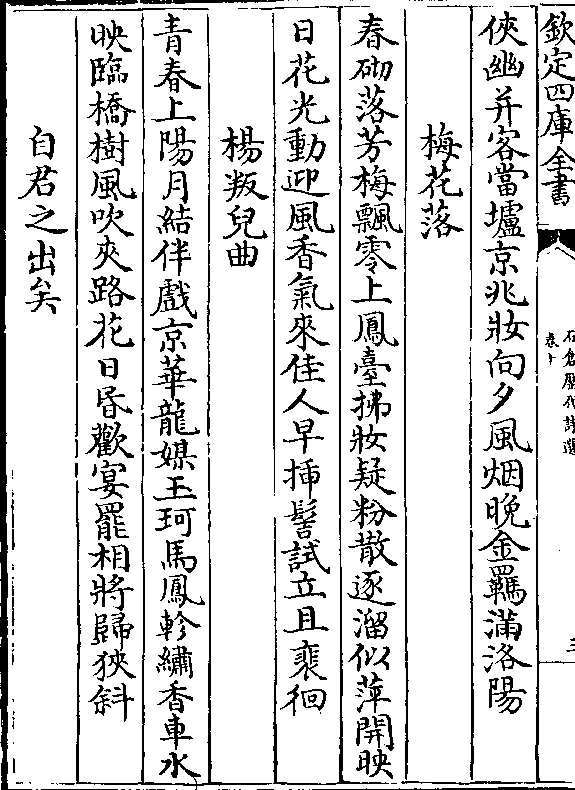 欽定四庫全書
石倉歷代詩選
卷十
三
俠幽并客當壚京兆妝向夕風烟晚金羈滿洛陽
梅花落
春砌落芳梅飄零上鳳臺拂妝疑粉散逐溜似萍開映
日花光動迎風香氣來佳人早揷髻試立且裵徊
楊叛兒曲
青春上陽月結伴戲京華龍媒玉珂馬鳳軫繡香車水
映臨橋樹風吹夾路花日昏歡宴罷相將歸狹斜
自君之出矣